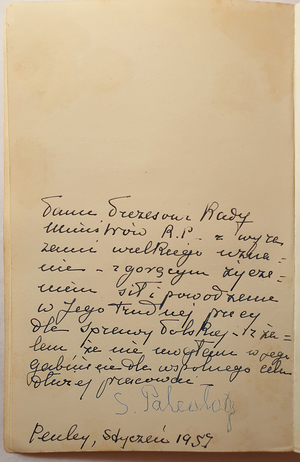 Panu Prezesowi Rady
Ministrów R.P. z wyra-
zami wielkiego uzna-
nia - z gorącym życze-
niem sił i powodzenia
w Jego trudnej pracy
dla Sprawy Polskiej - z ża-
lem że nie mogłam w jego
gabinecie dla wspólnego celu
dłużej pracować.
S.
Penley, Styczeń 1959